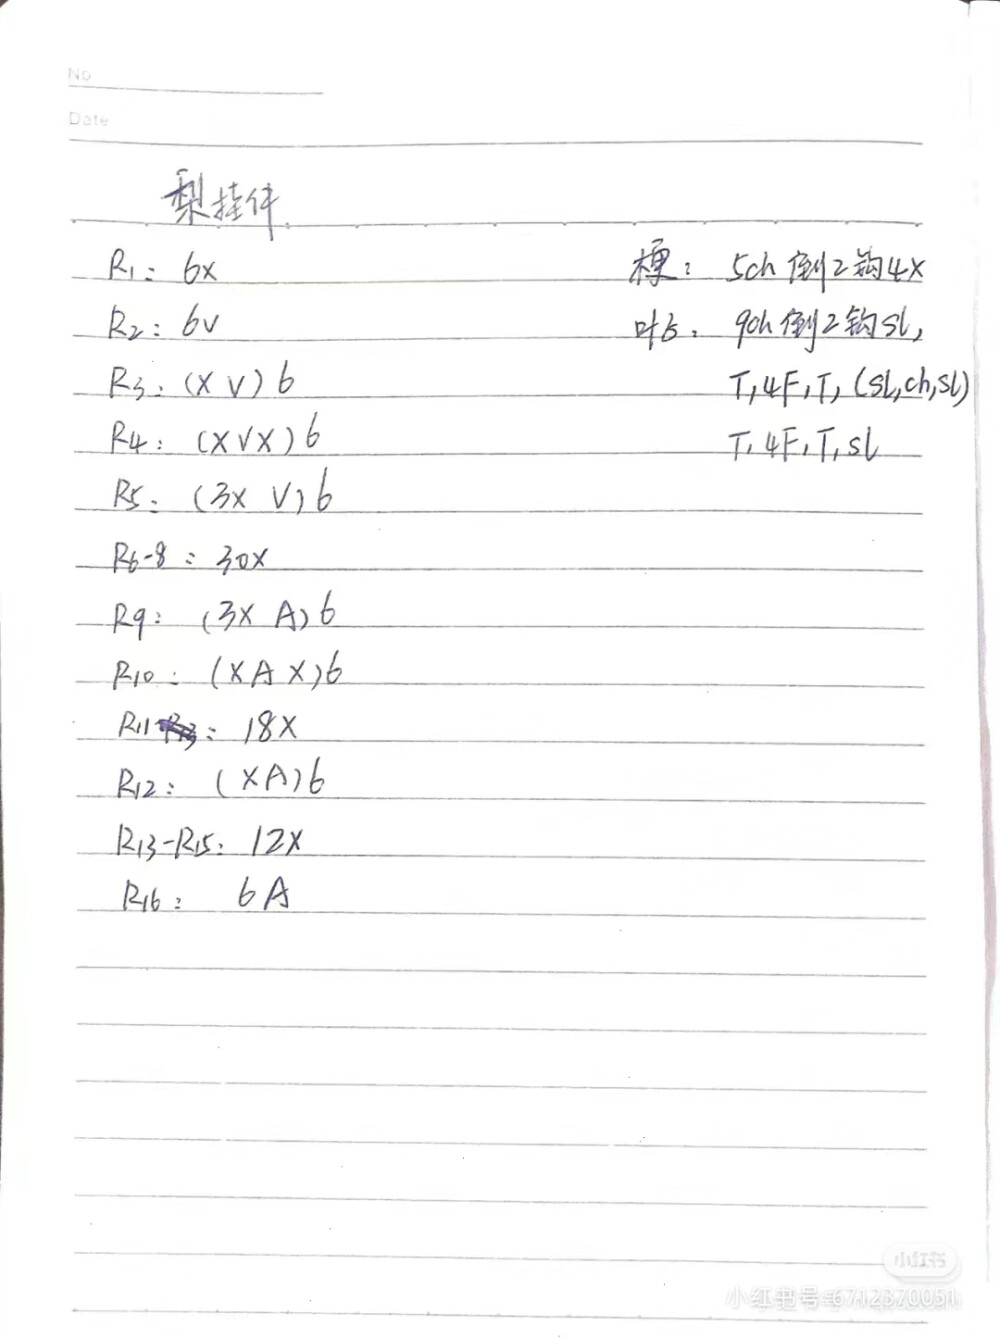 No
Date
梨挂件
R1: 6x
R2: 6v
R3: (X V) 6
R4: (X V X) 6
R5: (3X V) 6
R6-8: 30X
R9: (3X A) 6
R10: (X A X) 6
R11: 18X
R12: (XA) 6
R13-R15: 12X
R16: 6A
梗: 5ch 倒2钩4X
叶子: 9ch 倒2钩sl,
T, 4F, T, (sl, ch, sl)
T, 4F, T, sl
小红书
小红书号:6712370051